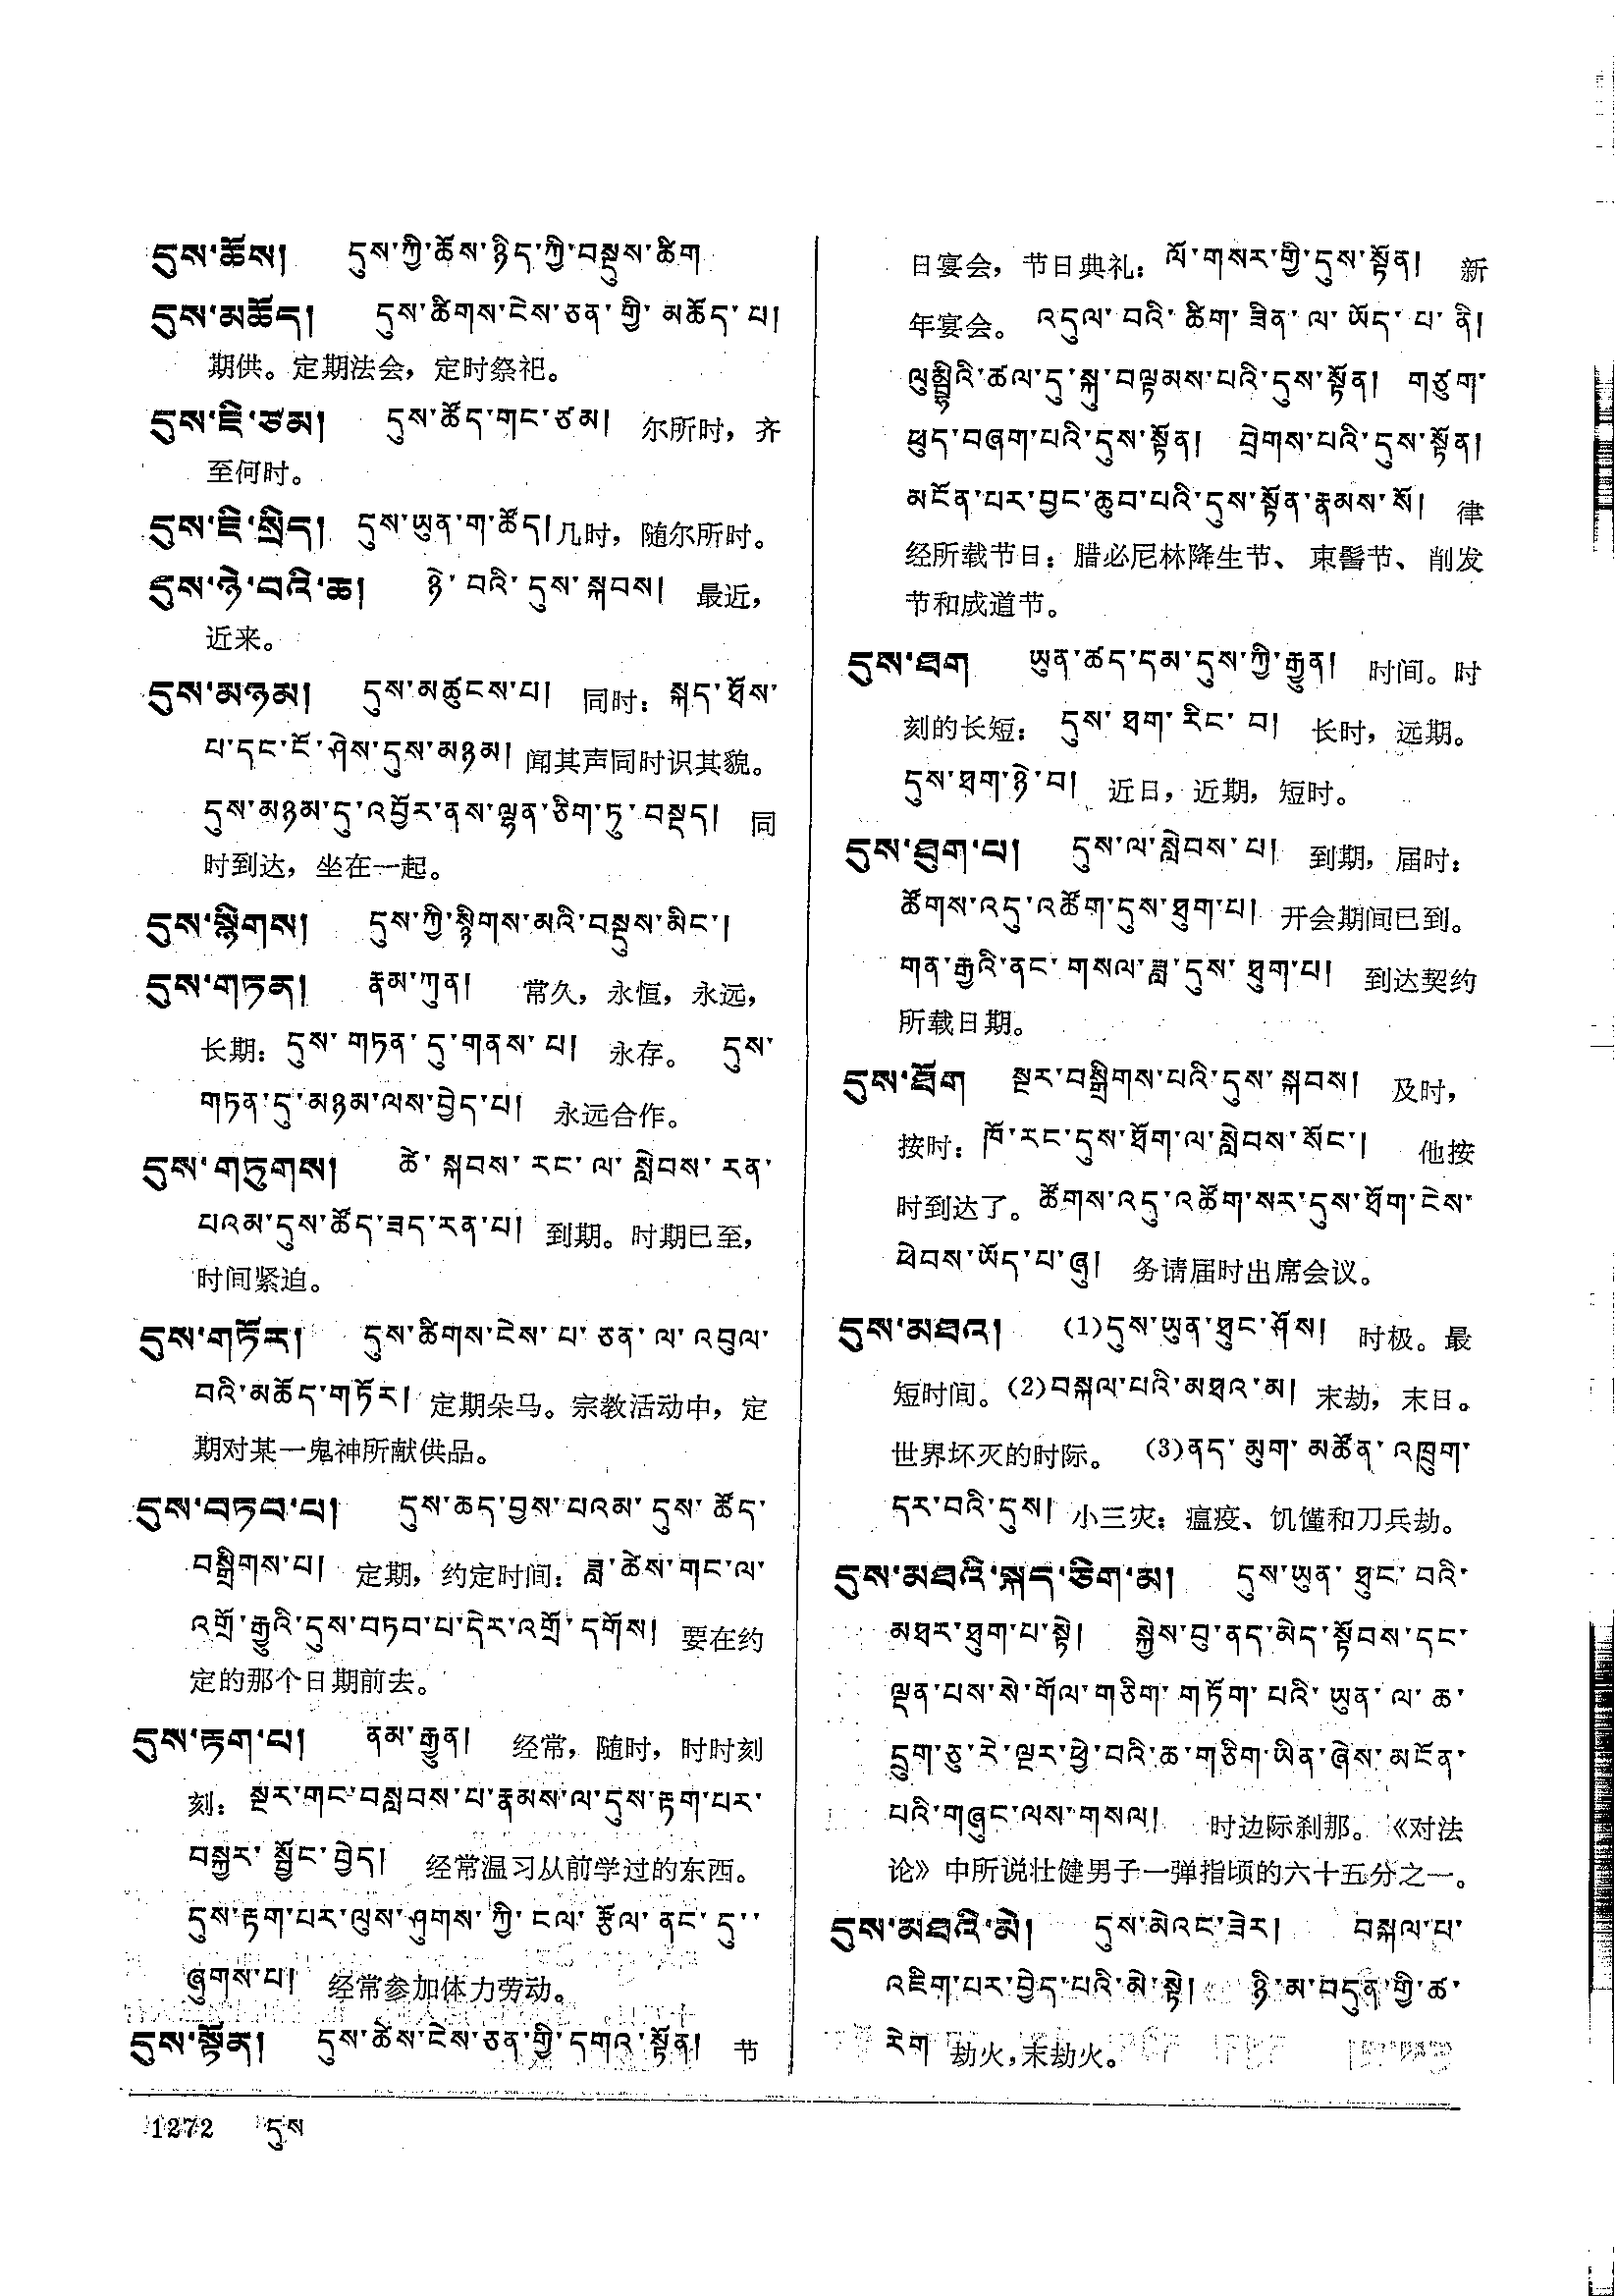 དུས་ཆོས། དུས་ཀྱི་ཆོས་ཉིད་ཀྱི་བསྡུས་ཚིག
དུས་མཆོད། དུས་ཚིགས་ངེས་ཅན་གྱི་མཆོད་པ།
期供。定期法会，定时祭祀。
དུས་ཇི་ཙམ། དུས་ཚོད་གང་ཙམ། 尔所时，齐
至何时。
དུས་ཇི་སྲིད། དུས་ཡུན་ག་ཚོད།几时，随尔所时。
དུས་ཉེ་བའི་ཆ། ཉེ་བའི་དུས་སྐབས། 最近，
近来。
དུས་མཉམ། དུས་མཚུངས་པ། 同时：སྐད་ཐོས་
པ་དང་ངོ་ཤེས་དུས་མཉམ། 闻其声同时识其貌。
དུས་མཉམ་དུ་འབྱོར་ནས་ལྷན་ཅིག་ཏུ་བསྡད། 同
时到达，坐在一起。
དུས་སྙིགས། དུས་ཀྱི་སྙིགས་མའི་བསྡུས་མིང་།
དུས་གཏན། རྣམ་ཀུན། 常久，永恒，永远，
长期：དུས་གཏན་དུ་གནས་པ། 永存。 དུས་
གཏན་དུ་མཉམ་ལས་བྱེད་པ། 永远合作。
དུས་གཏུགས། ཚེ་སྐབས་རང་ལ་སླེབས་རན་
པའམ་དུས་ཚོད་ཟད་རན་པ། 到期。时期已至，
时间紧迫。
དུས་གཏོར། དུས་ཚིགས་ངེས་པ་ཅན་ལ་འབུལ་
བའི་མཆོད་གཏོར། 定期朵马。宗教活动中，定
期对某一鬼神所献供品。
དུས་བཏབ་པ། དུས་ཆད་བྱས་པའམ་དུས་ཚོད་
བསྒྲིགས་པ། 定期，约定时间：ཟླ་ཚེས་གང་ལ་
འགྲོ་རྒྱུའི་དུས་བཏབ་པ་དེར་འགྲོ་དགོས། 要在约
定的那个日期前去。
དུས་རྟག་པ། ནམ་རྒྱུན། 经常，随时，时时刻
刻：སྔར་གང་བསླབས་པ་རྣམས་ལ་དུས་རྟག་པར་
བསྐྱར་སྦྱོང་བྱེད། 经常温习从前学过的东西。
དུས་རྟག་པར་ལུས་ཤུགས་ཀྱི་ངལ་རྩོལ་ནང་དུ་
ཞུགས་པ། 经常参加体力劳动。
དུས་སྟོན། དུས་ཚེས་ངེས་ཅན་གྱི་དགའ་སྟོན། 节
日宴会，节日典礼：ལོ་གསར་གྱི་དུས་སྟོན། 新
年宴会。འདུལ་བའི་ཚིག་ཟིན་ལ་ཡོད་པ་ནི།
ལུམྦྷིའི་ཚལ་དུ་སྐུ་བལྟམས་པའི་དུས་སྟོན། གཙུག་
ཕུད་བཞག་པའི་དུས་སྟོན། བྲེགས་པའི་དུས་སྟོན།
མངོན་པར་བྱང་ཆུབ་པའི་དུས་སྟོན་རྣམས་སོ། 律
经所载节日：腊必尼林降生节、束髻节、削发
节和成道节。
དུས་ཐག ཡུན་ཚད་དམ་དུས་ཀྱི་རྒྱུན། 时间。时
刻的长短：དུས་ཐག་རིང་བ། 长时，远期。
དུས་ཐག་ཉེ་བ། 近日，近期，短时。
དུས་ཐུག་པ། དུས་ལ་སླེབས་པ། 到期，届时：
ཚོགས་འདུ་འཚོག་དུས་ཐུག་པ། 开会期间已到。
གན་རྒྱའི་ནང་གསལ་ཟླ་དུས་ཐུག་པ། 到达契约
所载日期。
དུས་ཐོག སྔར་བསྒྲིགས་པའི་དུས་སྐབས། 及时，
按时：ཁོ་རང་དུས་ཐོག་ལ་སླེབས་སོང་། 他按
时到达了。ཚོགས་འདུ་འཚོག་སར་དུས་ཐོག་ངེས་
ཕེབས་ཡོད་པ་ཞུ། 务请届时出席会议。
དུས་མཐའ། (1)དུས་ཡུན་ཐུང་ཤོས། 时极。最
短时间。(2)བསྐལ་པའི་མཐའ་མ། 末劫，末日。
世界坏灭的时际。 (3)ནད་མུག་མཚོན་འཁྲུག་
དར་བའི་དུས། 小三灾：瘟疫、饥馑和刀兵劫。
དུས་མཐའི་སྐད་ཅིག་མ། དུས་ཡུན་ཐུང་བའི་
མཐར་ཐུག་པ་སྟེ། སྐྱེས་བུ་ནད་མེད་སྟོབས་དང་
ལྡན་པས་སེ་གོལ་གཅིག་གཏོག་པའི་ཡུན་ལ་ཆ་
དྲུག་ཅུ་རེ་ལྔར་ཕྱེ་བའི་ཆ་གཅིག་ཡིན་ཞེས་མངོན་
པའི་གཞུང་ལས་གསལ། 时边际刹那。《对法
论》中所说壮健男子一弹指顷的六十五分之一。
དུས་མཐའི་མེ། དུས་མེའང་ཟེར། བསྐལ་པ་
འཇིག་པར་བྱེད་པའི་མེ་སྟེ། ཉི་མ་བདུན་གྱི་ཚ་
རེག 劫火，末劫火。
1272 དུས